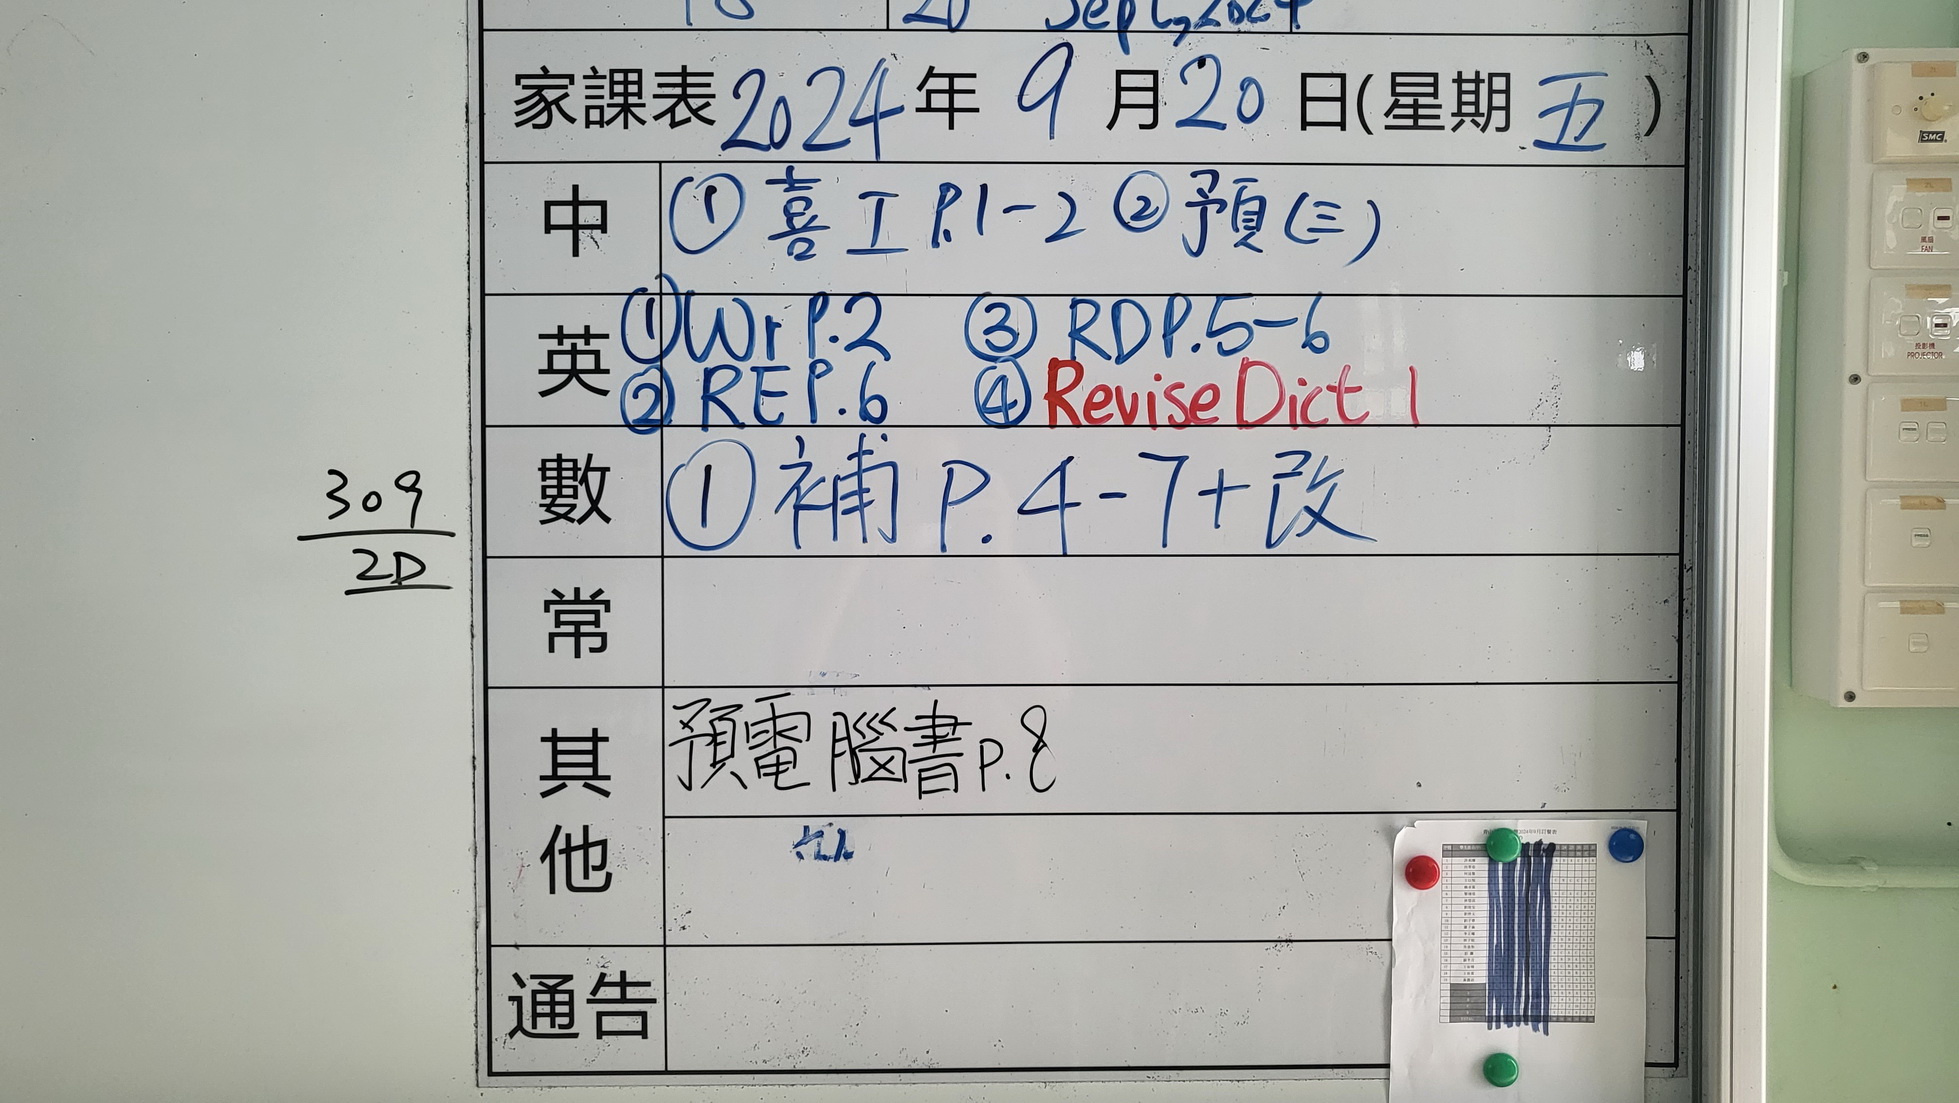 18 20 Sept, 2024
家課表 2024 年 9 月 20 日(星期 五 )
中 ① 喜工 P.1-2 ② 預(三)
英 ① Wr P.2 ③ RD P.5-6
② RE P.6 ④ Revise Dict 1
數 ① 補 P.4-7+改
309
2D
常
其他 預電腦書 P.8
通告
SMC
風扇
FAN
投影機
PROJECTOR